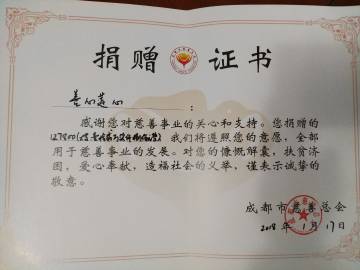 捐赠证书
善心莲心：
感谢您对慈善事业的关心和支持。您捐赠的
127800 我们将遵照您的意愿，全部
用于慈善事业的发展。对您的慷慨解囊，扶贫济
困，爱心奉献，造福社会的义举，谨表示诚挚的
敬意。
成都市慈善总会
2018年1月17日